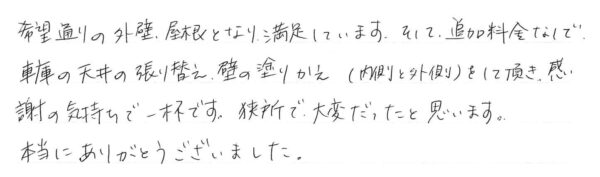 希望通りの外壁、屋根となり、満足しています。そして、追加料金なしで、
車庫の天井の張り替え、壁の塗りかえ（内側と外側）をして頂き、感
謝の気持ちで一杯です。狭所で、大変だったと思います。
本当にありがとうございました。